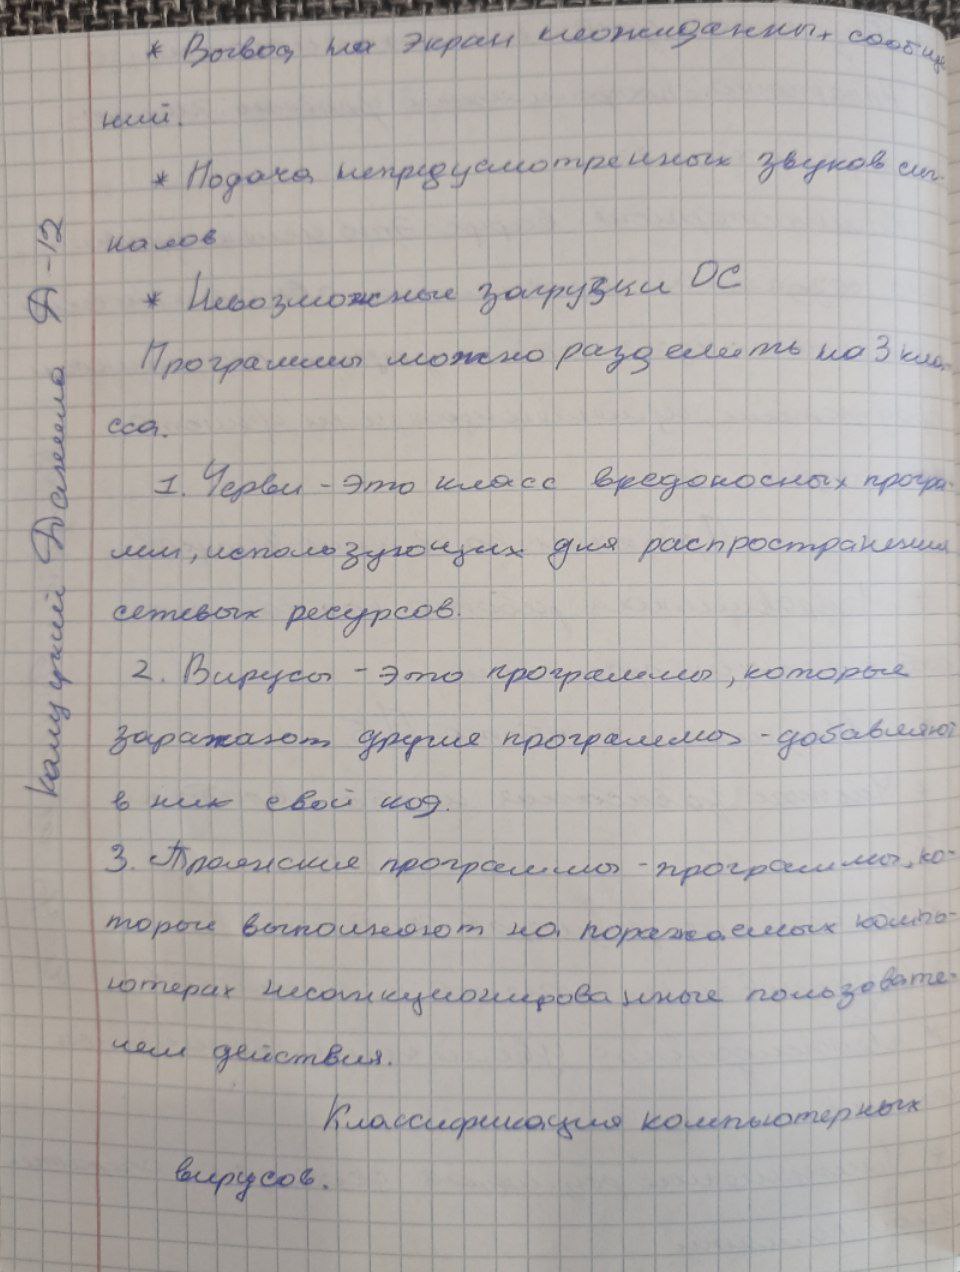 * Вывод на экран неожиданных сообще
ний.
* Подача непредусмотренных звуков сиг-
налов
* Невозможные загрузки ОС
Программы можно разделить на 3 кла-
сса.
1. Черви - это класс вредоносных програ-
мм, использующих для распространения
сетевых ресурсов.
2. Вирусы - это программы, которые
заражают другие программы - добавляют
в них свой код.
3. Троянские программы - программы, ко-
торые выполняют на поражаемых компь-
ютерах несанкционированные пользовате-
лем действия.
Классификация компьютерных
вирусов.
Даниела Д-12